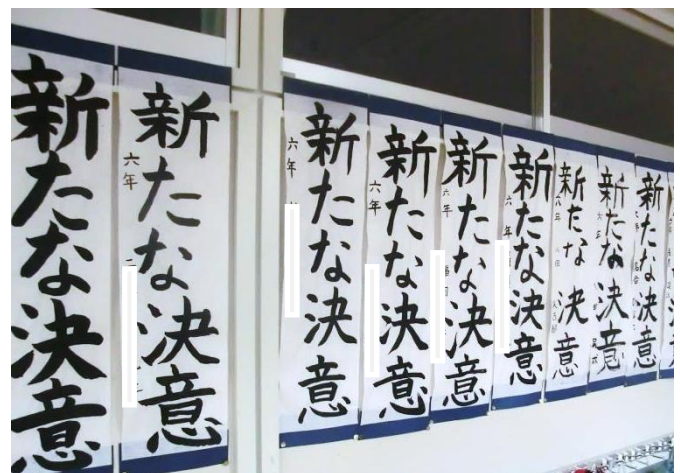 新たな決意
新たな決意
六年
新たな決意
六年
新たな決意
六年
新たな決意
六年
新たな決意
六年
新たな決意
六年
新たな決意
六年
新たな決意